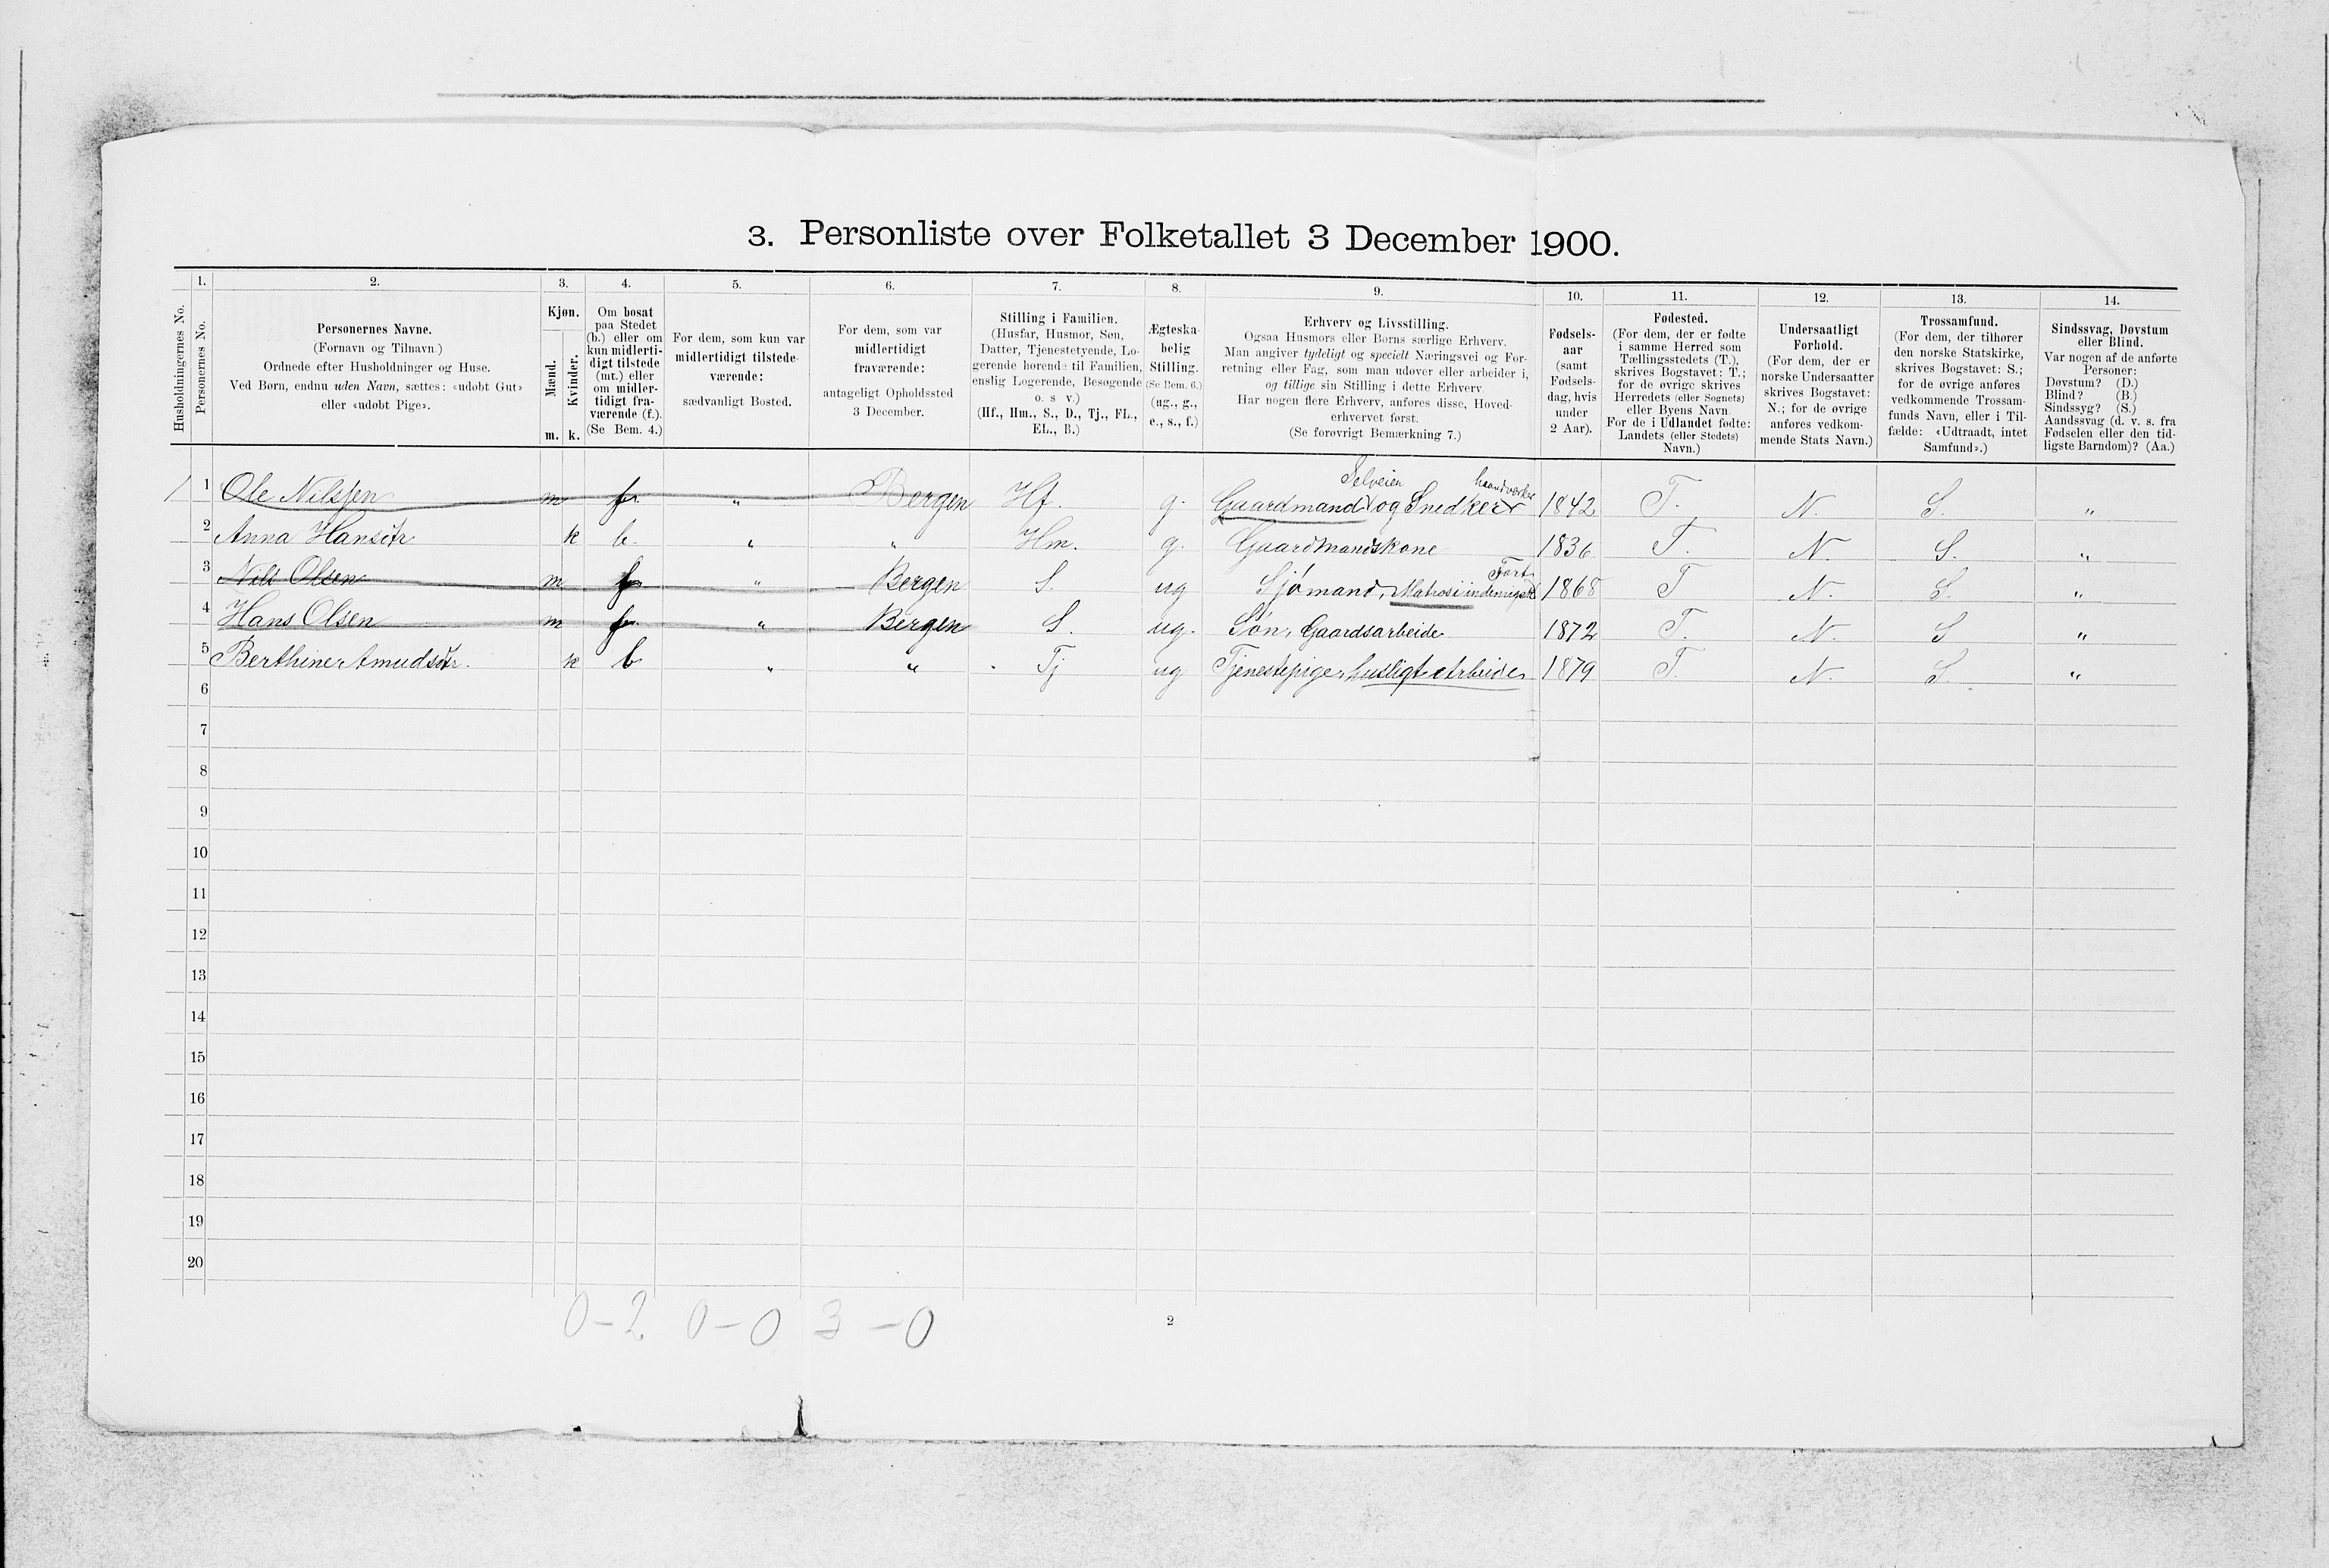 3. Personliste over Folketallet 3 December 1900.
Husholdningernes No.
1. Personernes No.
2. Personernes Navne.
(Fornavn og Tilnavn)
Ordnede efter Husholdninger og Huse.
Ved Børn, endnu uden Navn, sættes: «udøbt Gut»
eller «udøbt Pige».
3. Kjøn.
Mænd. m.
Kvinder. k.
4. Om bosat
paa Stedet
(b.) eller om
kun midlerti-
digt tilstede
(mt.) eller
om midler-
tidigt fra-
værende (f.).
(Se Bem. 4.)
5. For dem, som kun var
midlertidigt tilstede-
værende:
sædvanligt Bosted.
6. For dem, som var
midlertidigt
fraværende:
antageligt Opholdssted
3 December.
7. Stilling i Familien.
(Husfar, Husmor, Søn,
Datter, Tjenestetyende, Lo-
gerende hørende til Familien,
enslig Logerende, Besøgende
o. s v.)
(Hf., Hm., S., D., Tj., FL.,
EL., B.)
8. Ægteska-
belig
Stilling.
(Se Bem. 6.)
(ug., g.,
e., s., f.)
9. Erhverv og Livsstilling.
Ogsaa Husmors eller Børns særlige Erhverv.
Man angiver tydeligt og specielt Næringsvei og For-
retning eller Fag, som man udøver eller arbeider i,
og tillige sin Stilling i dette Erhverv.
Har nogen flere Erhverv, anføres disse, Hoved-
erhvervet først.
(Se forøvrigt Bemærkning 7.)
10. Fødsels-
aar
(samt
Fødsels-
dag, hvis
under
2 Aar).
11. Fødested.
(For dem, der er fødte
i samme Herred som
Tællingsstedets (T.),
skrives Bogstavet: T.;
for de øvrige skrives
Herredets (eller Sognets)
eller Byens Navn.
For de i Udlandet fødte:
Landets (eller Stedets)
Navn.)
12. Undersaatligt
Forhold.
(For dem, der er
norske Undersaatter
skrives Bogstavet:
N.; for de øvrige
anføres vedkom-
mende Stats Navn.)
13. Trossamfund.
(For dem, der tilhører
den norske Statskirke,
skrives Bogstavet: S.;
for de øvrige anføres
vedkommende Trossam-
funds Navn, eller i Til-
fælde: «Udtraadt, intet
Samfund».)
14. Sindssvag, Døvstum
eller Blind.
Var nogen af de anførte
Personer:
Døvstum? (D.)
Blind? (B.)
Sindssyg? (S.)
Aandssvag (d. v. s. fra
Fødselen eller den tid-
ligste Barndom)? (Aa.)
Selveier haandverker
1 1 Ole Nilssen m f " Bergen Hf. g. Gaardmand og Snedker 1842 T. N. S. "
2 Anna Hansdtr k b. " " Hm. g. Gaardmandskone 1836 T. N S. "
Fart
3 Nils Olsen m f " Bergen S. ug Sjømand, Matros i indenrigsk 1868 T N. S. "
4 Hans Olsen m f " Bergen S. ug. Søn, Gaardsarbeide 1872 T. N. S "
5 Berthine Amudsdtr. k b " " Tj ug Tjenestepige, husligt Arbeide 1879 T. N. S. "
6
7
8
9
10
11
12
13
14
15
16
17
18
19
20
0-2 0-0 3-0
2